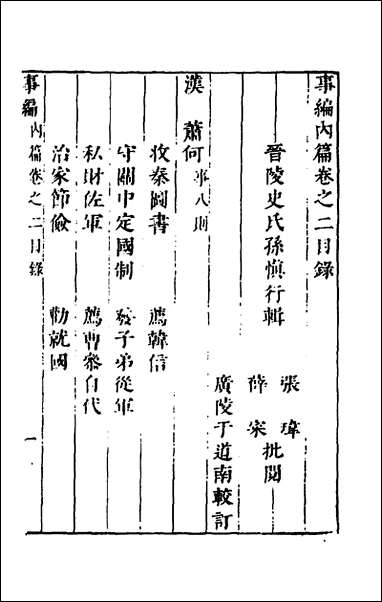 事編內篇卷之二目錄
晉陵史氏孫愼行輯
張瑋
薛寀
批閱
廣陵于道南較訂
漢 蕭何事八則
收秦圖書 薦韓信
守關中定國制 發子弟從軍
私財佐軍 薦曹參自代
治家節儉 勸就國
事編內篇卷之二目錄 一